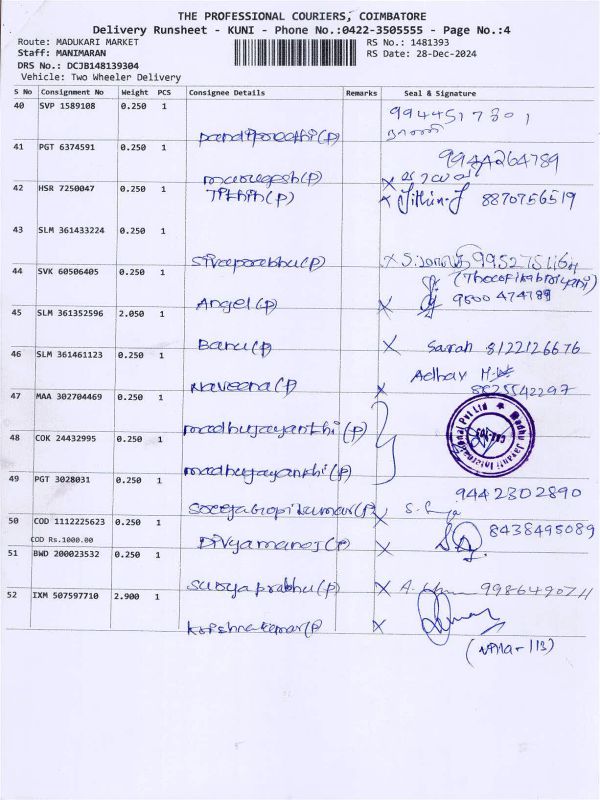 THE PROFESSIONAL COURIERS, COIMBATORE
Delivery Runsheet - KUNI - Phone No.:0422-3505555 - Page No.:4
Route: MADUKARI MARKET RS No.: 1481393
Staff: MANIMARAN RS Date: 28-Dec-2024
DRS No.: DCJB148139304
Vehicle: Two Wheeler Delivery
S No Consignment No Weight PCS Consignee Details Remarks Seal & Signature
40 SVP 1589108 0.250 1 9944517301
41 PGT 6374591 0.250 1 murugesh(p) 9944264789
42 HSR 7250047 0.250 1 Jithin(p) X Jithin.J 8870756519
43 SLM 361433224 0.250 1 Sivaprabhu(p) X
44 SVK 60506405 0.250 1 Angel(p) X 9500474789
45 SLM 361352596 2.050 1 Banu(p) X Sarah 8122126676
46 SLM 361461123 0.250 1 Naveena(p) X Adhav 8825542297
47 MAA 302704469 0.250 1 madhujayanthi(p)
Madhu Jayanti International Pvt Ltd
48 COK 24432995 0.250 1 madhujayanthi(p)
49 PGT 3028031 0.250 1 X 9442302890
50 COD 1112225623 0.250 1 Divyamanoj(p) X 8438495089
COD Rs.1000.00
51 BWD 200023532 0.250 1 Suryaprabhu(p) X
52 IXM 507597710 2.900 1 Krishnakumar(p) X